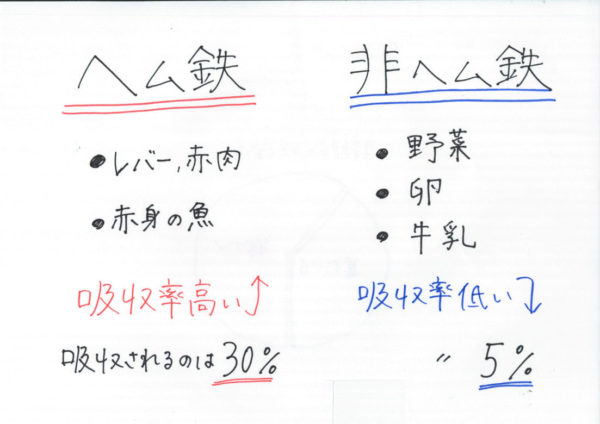 ヘム鉄
・レバー,赤肉
・赤身の魚
吸収率高い↑
吸収されるのは30%
非ヘム鉄
・野菜
・卵
・牛乳
吸収率低い↓
〃 5%